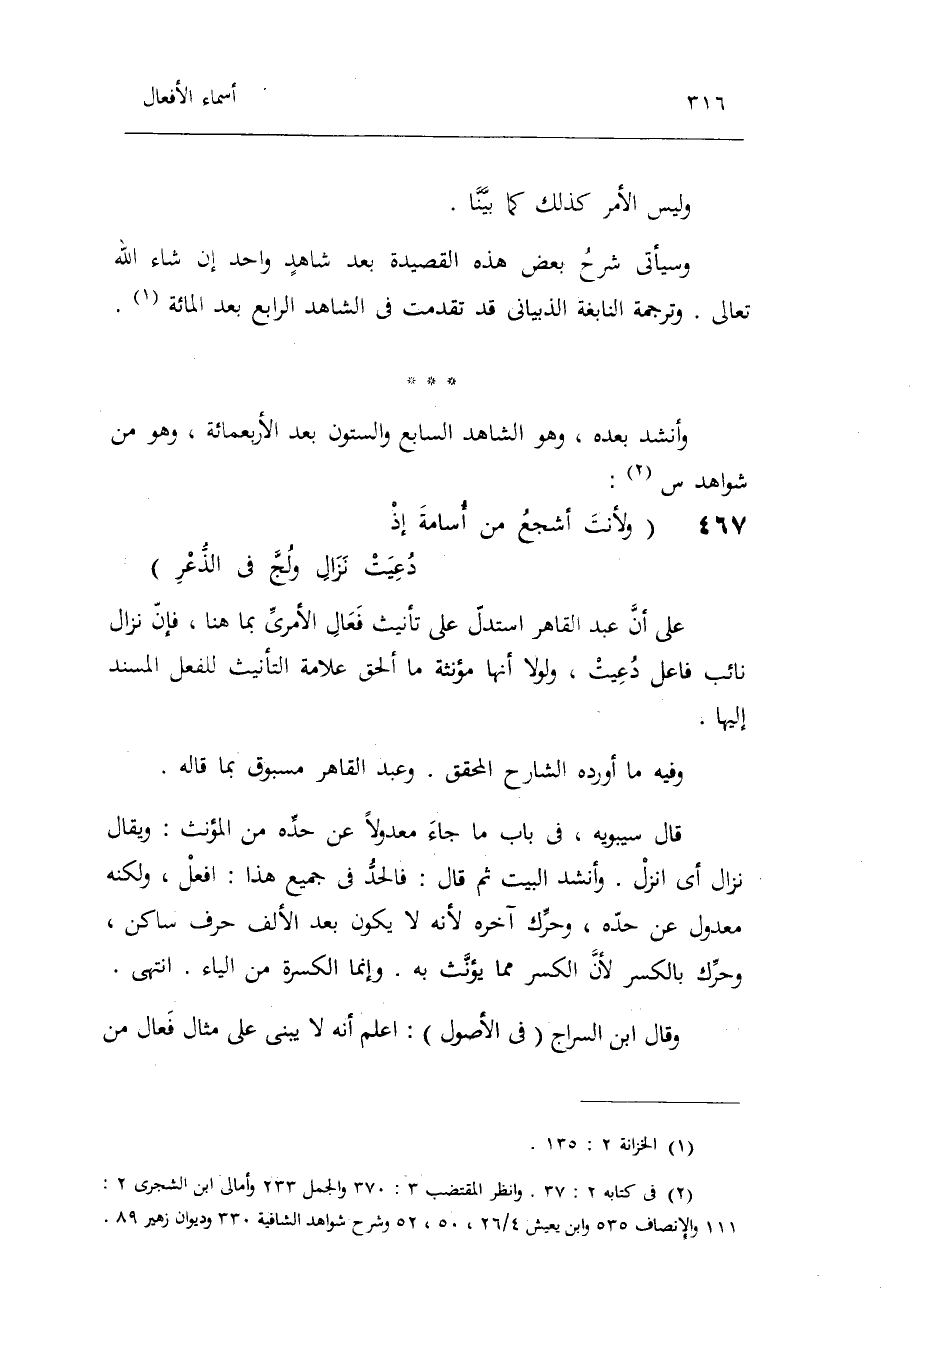 ٣١٦ أسماء الأفعال
وليس الأمر كذلك كما بيَّنَّا .
وسيأتى شرحُ بعض هذه القصيدة بعد شاهدٍ واحد إن شاء الله
تعالى . وترجمة النابغة الذبيانى قد تقدمت فى الشاهد الرابع بعد المائة (١) .
* * *
وأنشد بعده ، وهو الشاهد السابع والستون بعد الأربعمائة ، وهو من
شواهد س (٢) :
٤٦٧ ( ولأنتَ أشجعُ من أُسامةَ إذْ
دُعِيَتْ نَزَالِ ولُجَّ فى الذُّعْرِ )
على أنَّ عبد القاهر استدلّ على تأنيث فَعَالِ الأمرىِّ بما هنا ، فإنّ نزال
نائب فاعل دُعِيتْ ، ولولا أنها مؤنثة ما ألحق علامة التأنيث للفعل المسند
إليها .
وفيه ما أورده الشارح المحقق . وعبد القاهر مسبوق بما قاله .
قال سيبويه ، فى باب ما جاءَ معدولاً عن حدِّه من المؤنث : ويقال
نزال أى انزلْ . وأنشد البيت ثم قال : فالحدُّ فى جميع هذا : افعلْ ، ولكنه
معدول عن حدّه ، وحرِّك آخره لأنه لا يكون بعد الألف حرف ساكن ،
وحرِّك بالكسر لأنَّ الكسر مما يؤنَّث به . وإنما الكسرة من الياء . انتهى .
وقال ابن السراج ( فى الأصول ) : اعلم أنه لا يبنى على مثال فَعال من
(١) الخزانة ٢ : ١٣٥ .
(٢) فى كتابه ٢ : ٣٧ . وانظر المقتضب ٣ : ٣٧٠ والجمل ٢٣٣ وأمالى ابن الشجرى ٢ :
١١١ والإنصاف ٥٣٥ وابن يعيش ٢٦/٤ ، ٥٠ ، ٥٢ وشرح شواهد الشافية ٢٣٠ وديوان زهير ٨٩ .